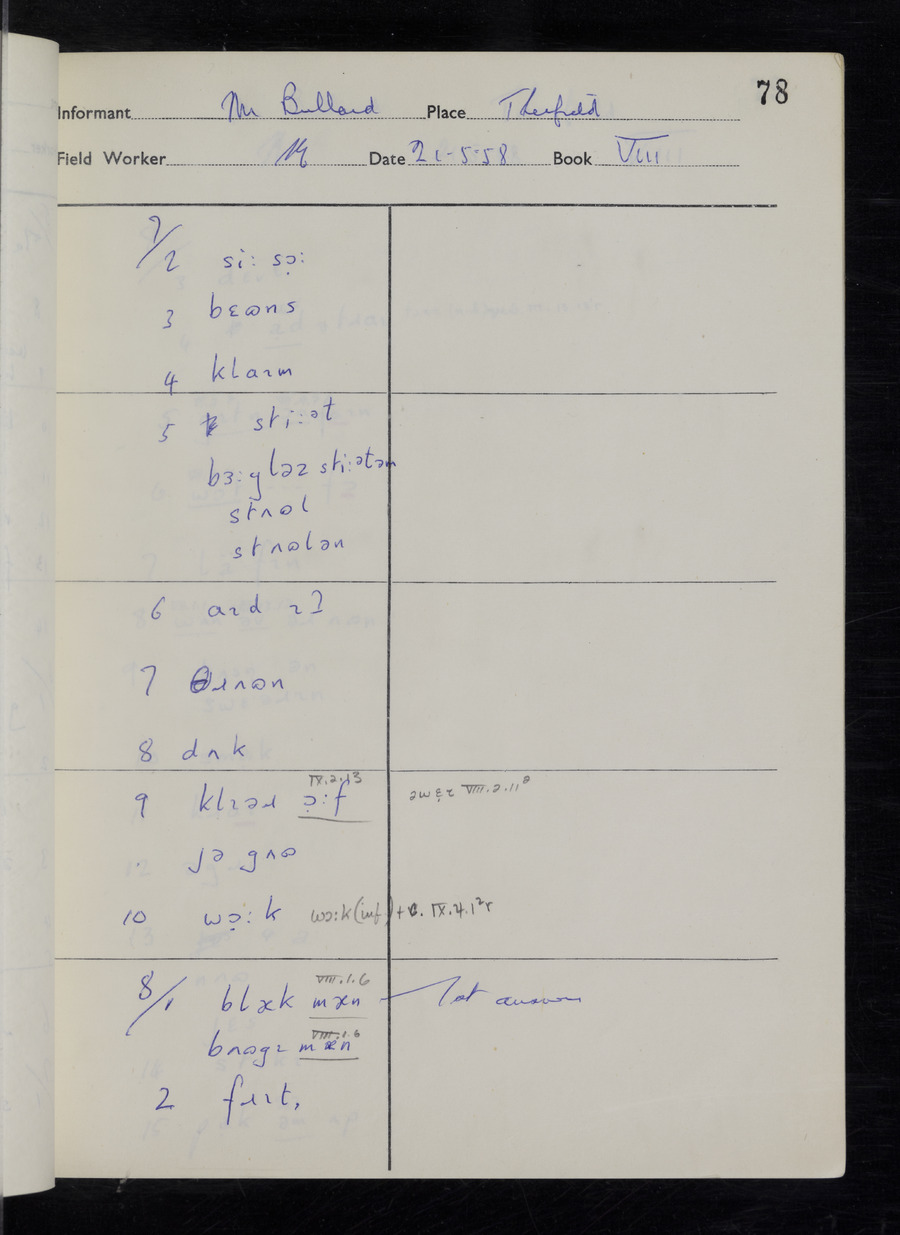 78
Informant Mr Bullard Place Therfield
Field Worker Date 21-5-58 Book VIII
7/2 si: sɔ̣:
3 bɛɷns
4 klaɪm
5 sti:ət
bɜ:gləz sti:ətən
stʌɷl
stʌɷlən
6 aɪd ɪt
7 θɹʌɷn
8 dʌk
9 klɪəɹ ɔ̣:f IX.2.13 əwɛ̣ɪ VIII.2.11
jə gʌɷ
10 wɔ̣:k wɔ:k (inf) + c. IX.4.1²r
8/1 blæk mæn VIII.1.6 1st answer
bʌɷgɪ mæn VIII.1.6
2 fɹɪt,